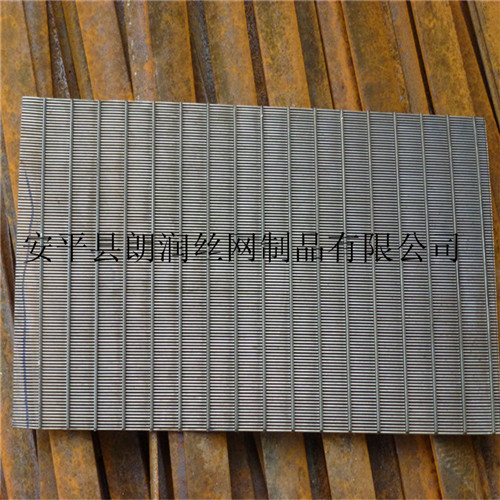 安平县朗润丝网制品有限公司